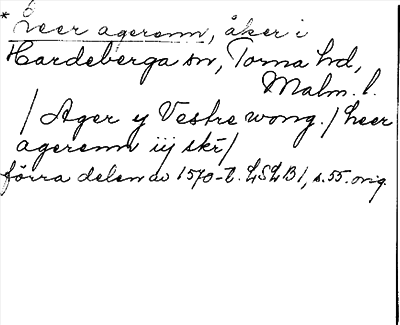 * Leer agerenn, åker i
Hardeberga sn, Torna hd,
Malm. l.
/ Ager y Vestre wong. / leer
agerenn iij skr /
förra delen av 1570-t. LSLB 1, s. 55. orig.